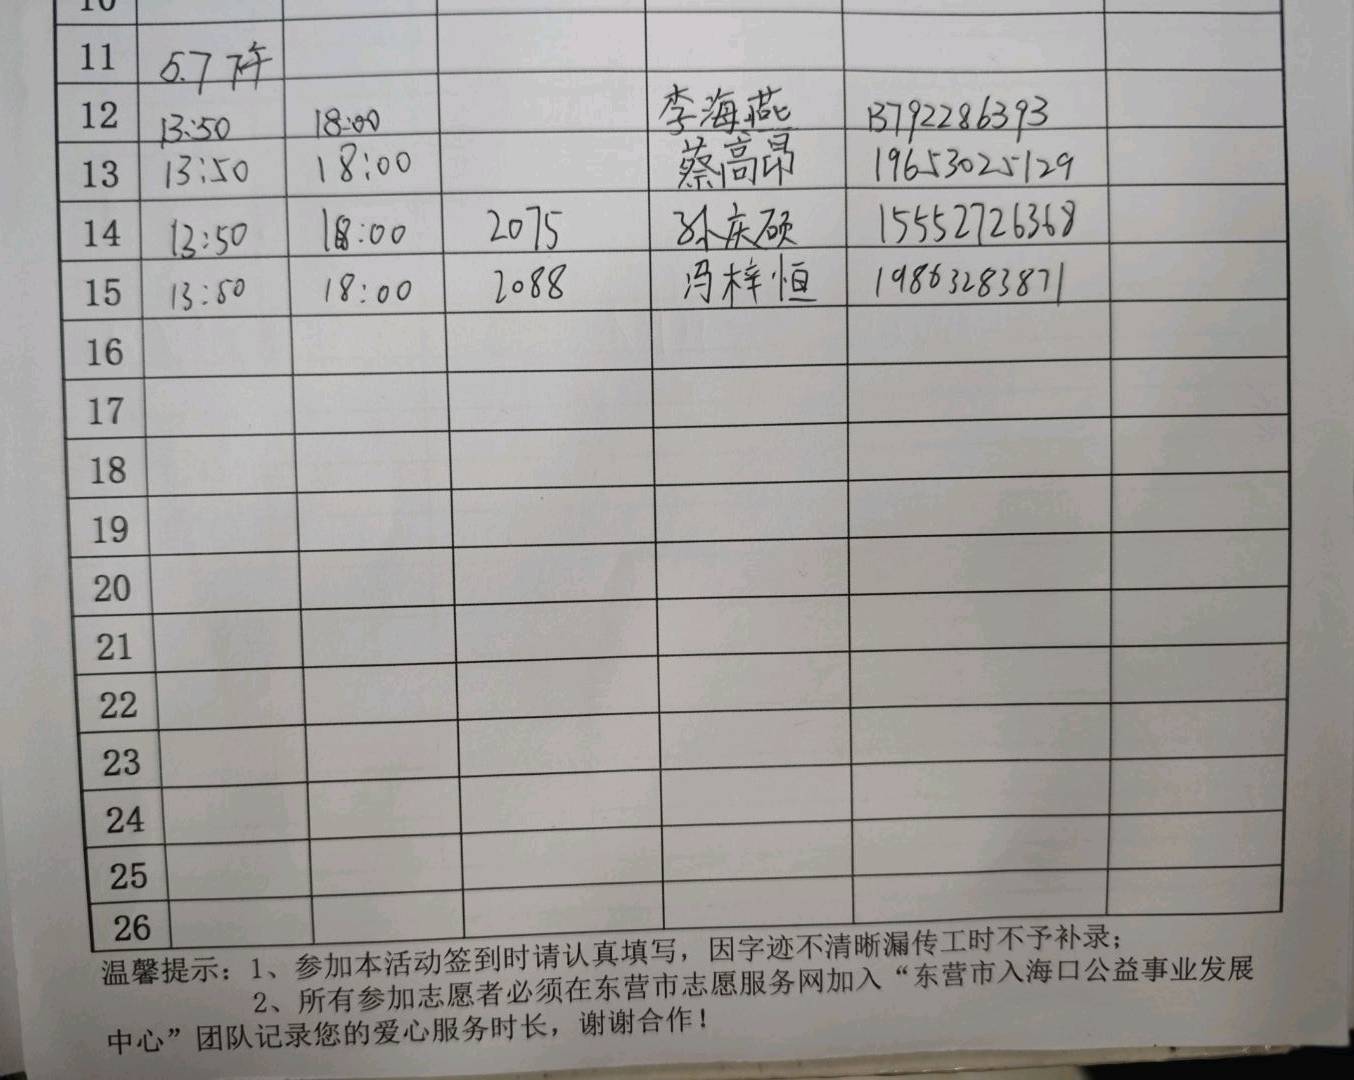 10
11 5.7 下午
12 13:50 18:00 李海燕 13792286393
13 13:50 18:00 蔡高昂 19653025129
14 13:50 18:00 2075 孙庆硕 15552726368
15 13:50 18:00 2088 冯梓恒 19863283871
16
17
18
19
20
21
22
23
24
25
26
温馨提示：1、参加本活动签到时请认真填写，因字迹不清晰漏传工时不予补录；
2、所有参加志愿者必须在东营市志愿服务网加入“东营市入海口公益事业发展
中心”团队记录您的爱心服务时长，谢谢合作！